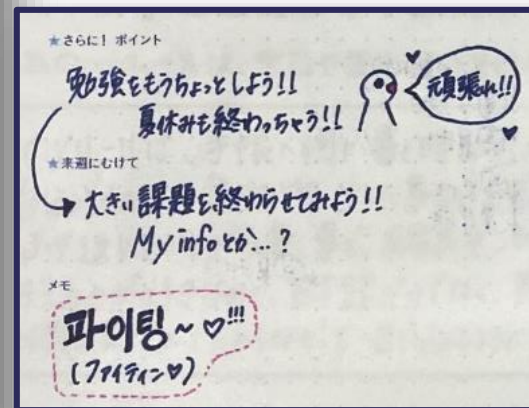 ★さらに！ ポイント
勉強をもうちょっとしよう!!
頑張れ!!
夏休みも終わっちゃう!!
★来週にむけて
大きい課題を終わらせてみよう!!
My infoとか…？
メモ
파이팅~♡!!!
(ファイティン♡)